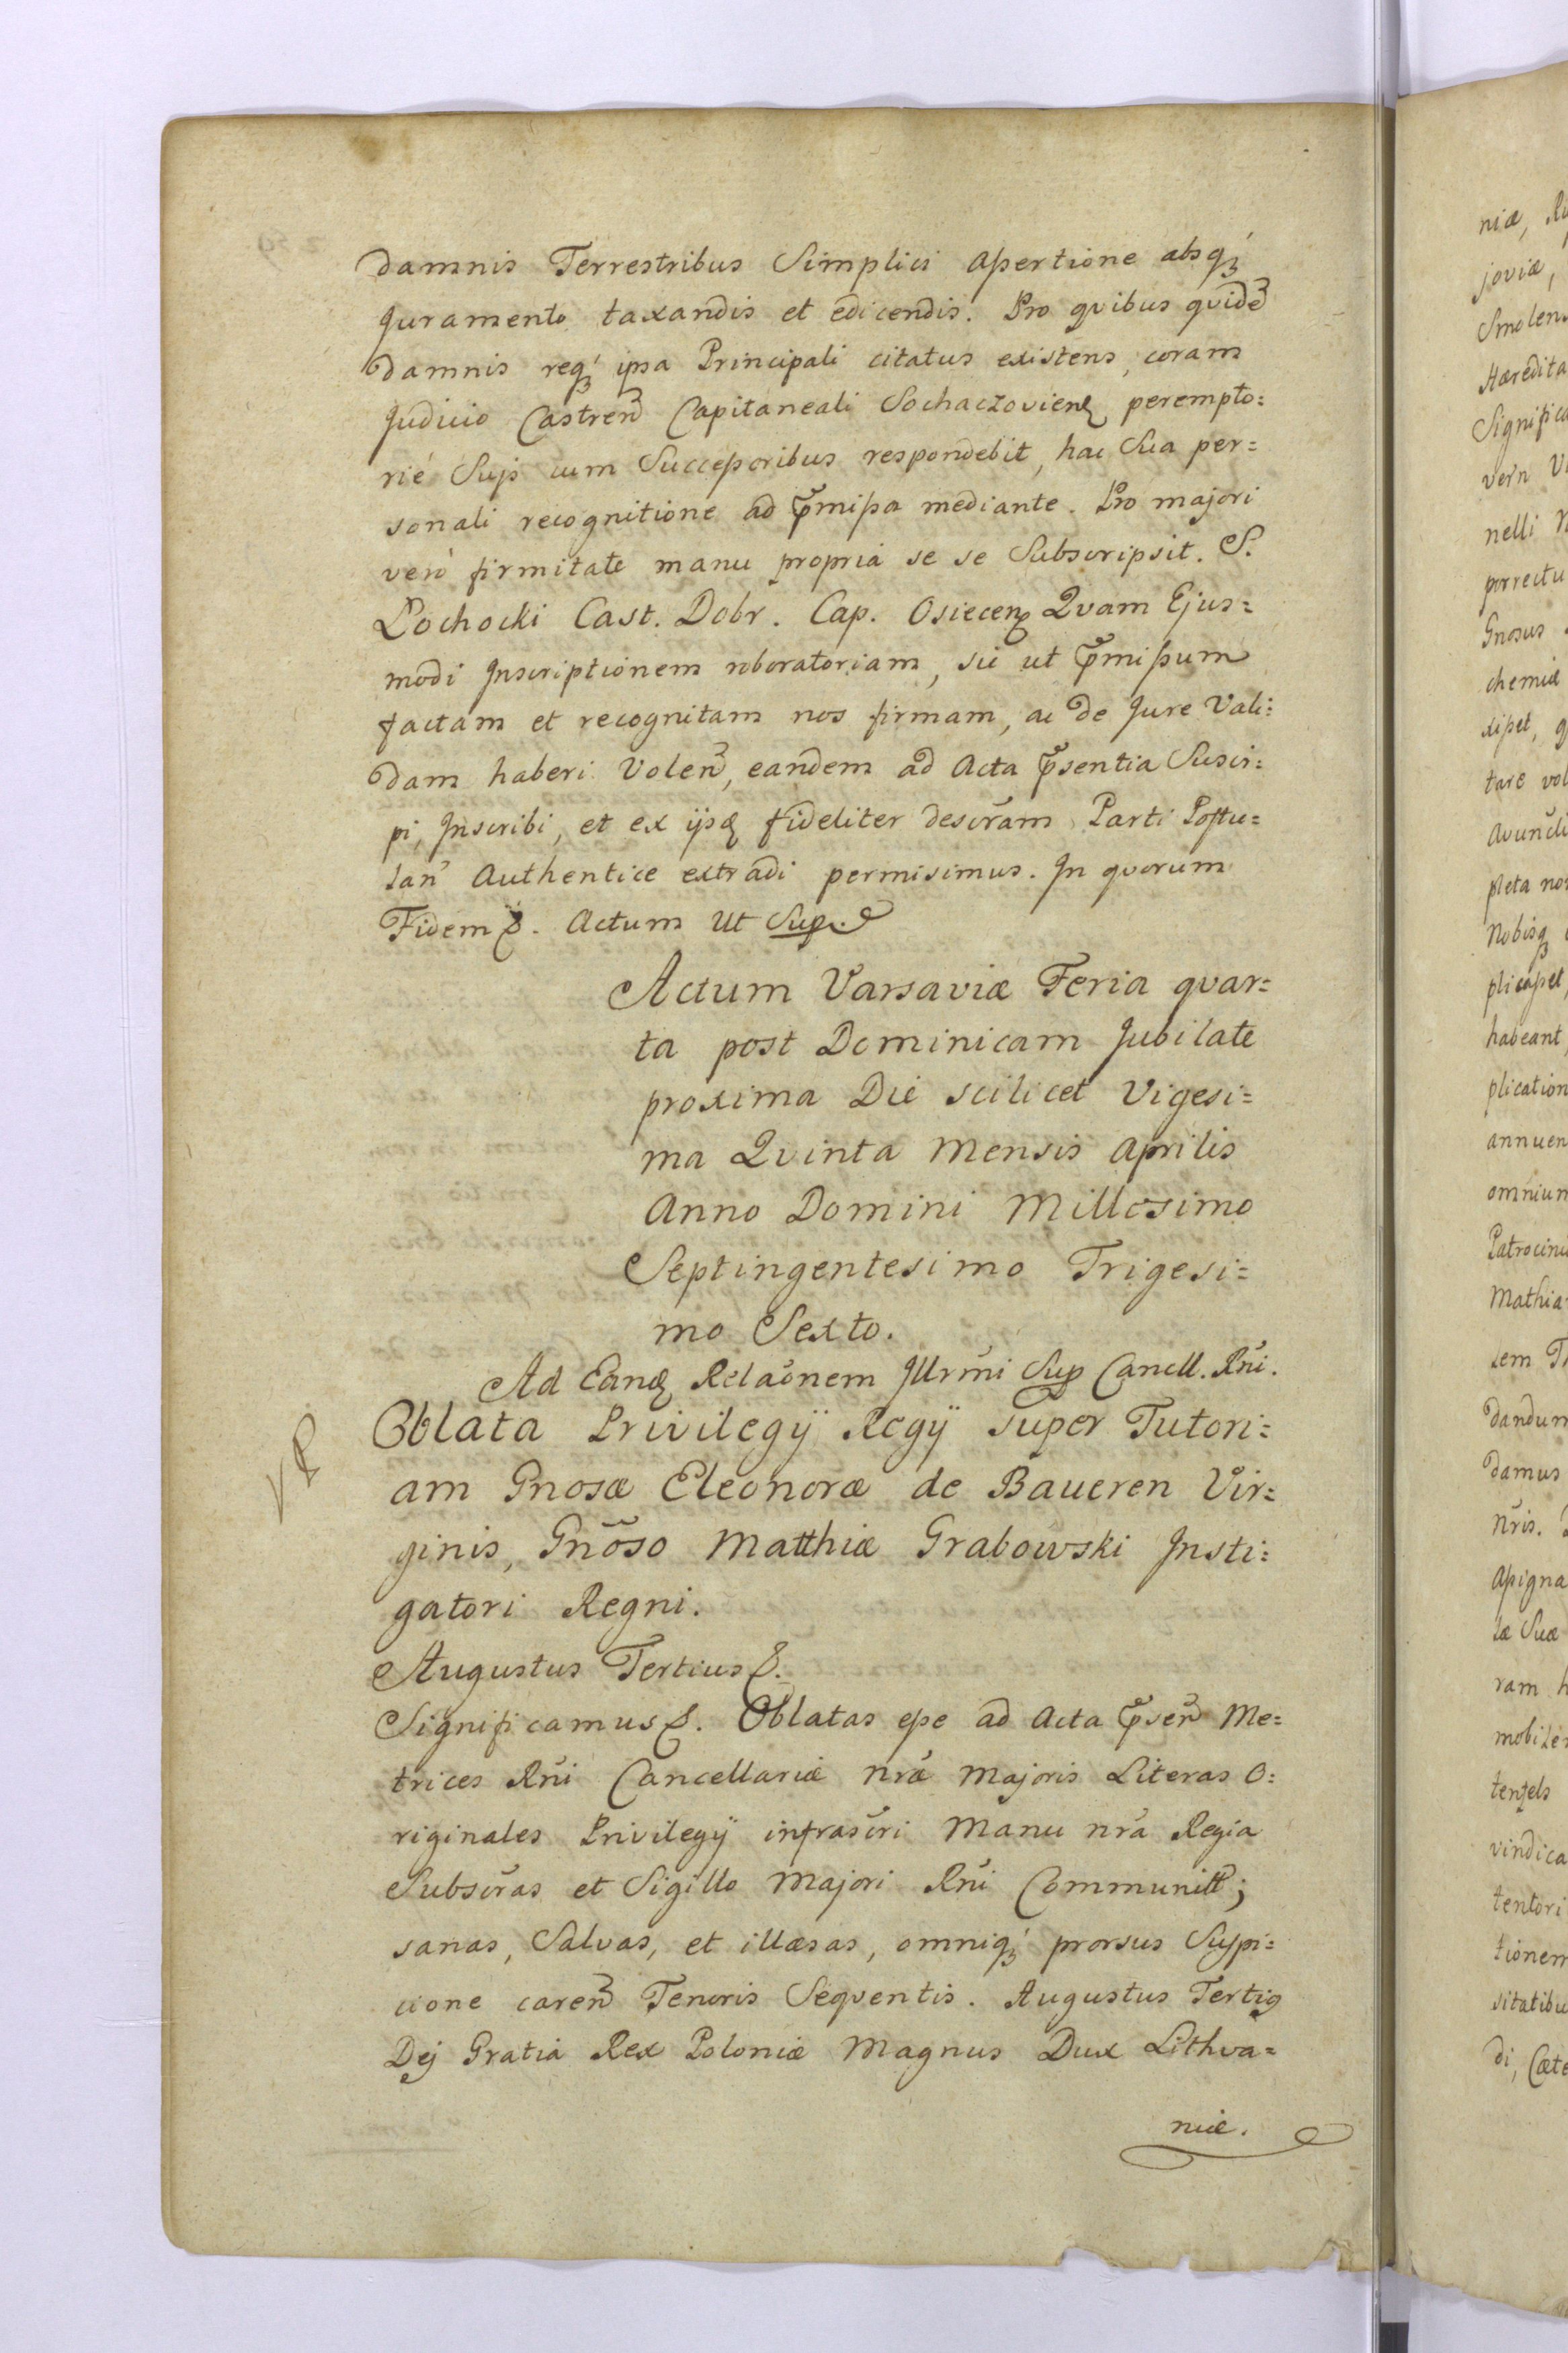 damnis Terrestribus Simplici apertione absq́
Juramento taxandis et edicendis. Pro qvibus qvidē
damnis req́ ipsa Principali citatus existens, coram
Judicio Castren Capitaneali Sochaczovienẜ perempto=
rié Suis cum Successoribus respondebit, hac Sua per=
sonali recognitione ad p̃missa mediante. Pro majori
verò firmitate manu propriá se se Subscripsit. S.
Łochocki Cast. Dobr. Cap. Osiecenẜ Qvam Ejus=
modi Inscriptionem roboratoriam, sic ut p̃missum
factam et recognitam nos firmam, ac de Jure Vali=
dam haberi Volen, eandem ad Acta p̃sentia Susci=
pi, Inscribi, et ex ijsd fideliter descr̃am Parti Postu=
lan Authentice extradi permisimus. In qvorum
Fidem &. Actum Ut Sup.
Actum Varsaviæ Feria qvar=
ta post Dominicam Jubilate
proxima Die scilicet Vigesi=
ma Qvinta Mensis Aprilis
Anno Domini Millesimo
Septingentesimo Trigesi=
mo Sexto.
Ad Eand Relaõnem Illrm̃i Sup Cancell. Rñi.
VR
Oblata Privilegÿ Regÿ super Tutori=
am Gnosæ Eleonoræ de Baueren Vir=
ginis, Gnõso Matthiæ Grabowski Insti=
gatori Regni.
Augustus Tertius &.
Significamus &. Oblatas esse ad Acta p̃sen Me=
trices Rñi Cancellariæ nr̃æ Majoris Literas O=
riginales Privilegÿ infrascr̃i Manu nr̃a Regia
Subscr̃as et Sigillo Majori Rñi Communitt;
sanas, Salvas, et illæsas, omniq́ prorsus Suspi=
cione caren Tenoris Seqventis. Augustus Tertiꝰ
Dej Gratia Rex Poloniæ Magnus Dux Lithva=
niæ.
niæ,
joviæ,
Smolen
Hæredita
Significa
vern
nelli
porrectu
Gnosus
chemiæ
xisset,
tare vol
avuncli
pleta non
Nobisq
plicasset
habeant
plication
annuen
omnium
Patrocini
Mathia
lem
dandum
damus
nr̃is.
assigna
læ Suæ
ram h
mobile
vindica
tentori
tionem
sitatibu
di, Cæte